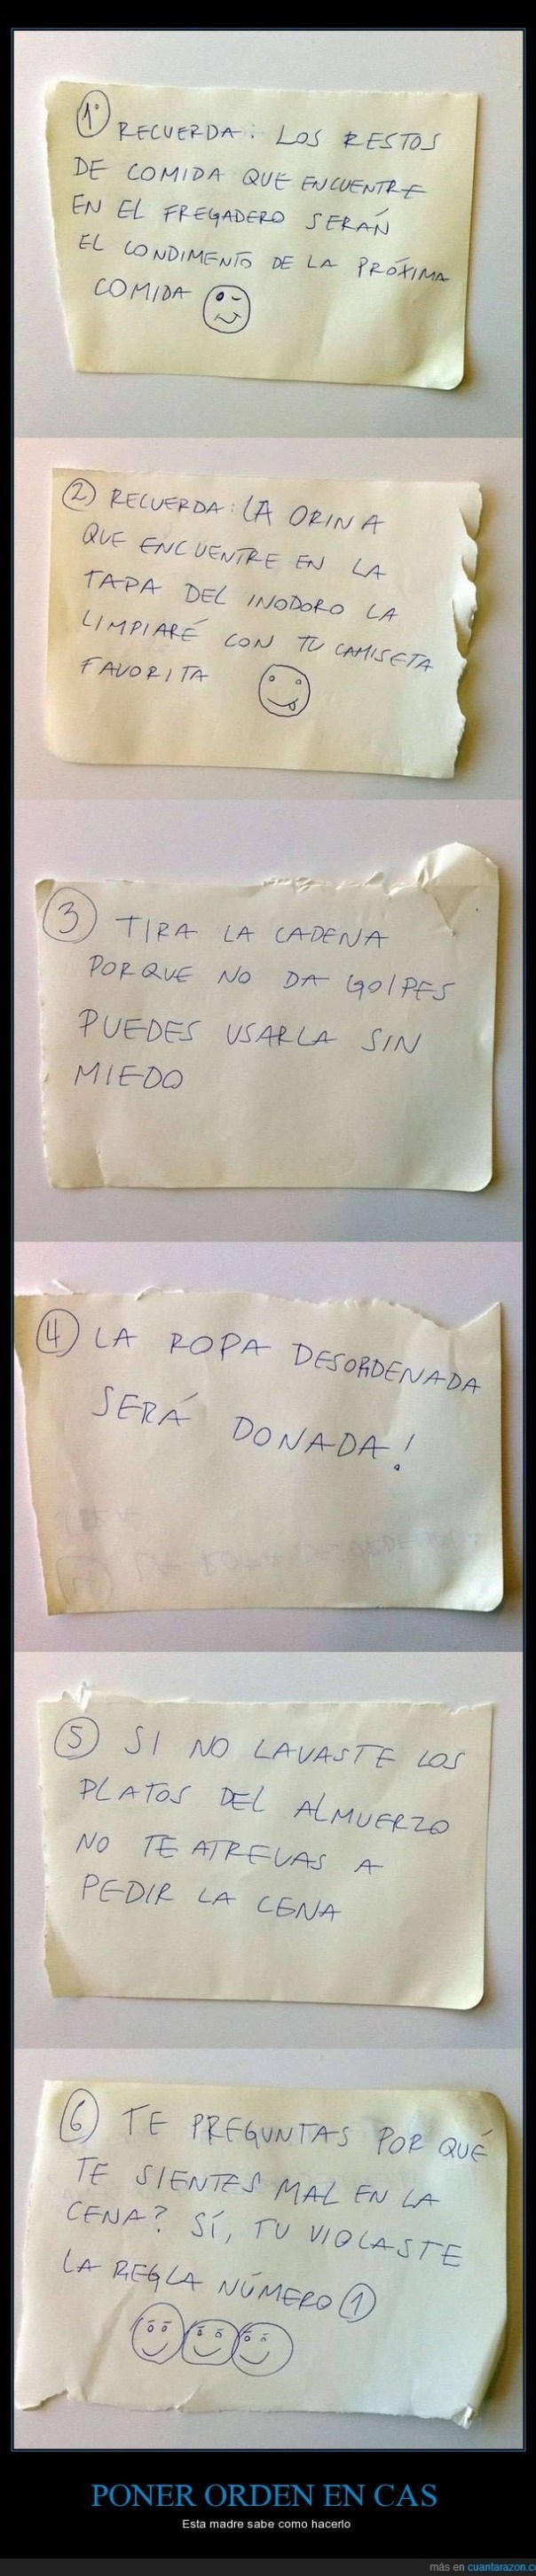 1º RECUERDA: LOS RESTOS
DE COMIDA QUE ENCUENTRE
EN EL FREGADERO SERÁN
EL CONDIMENTO DE LA PRÓXIMA
COMIDA
2 RECUERDA: LA ORINA
QUE ENCUENTRE EN LA
TAPA DEL INODORO LA
LIMPIARÉ CON TU CAMISETA
FAVORITA
3 TIRA LA CADENA
PORQUE NO DA GOLPES
PUEDES USARLA SIN
MIEDO
4 LA ROPA DESORDENADA
SERÁ DONADA!
5 SI NO LAVASTE LOS
PLATOS DEL ALMUERZO
NO TE ATREVAS A
PEDIR LA CENA
6 TE PREGUNTAS POR QUÉ
TE SIENTES MAL EN LA
CENA? SÍ, TU VIOLASTE
LA REGLA NÚMERO 1
PONER ORDEN EN CAS
Esta madre sabe como hacerlo
más en cuantarazon.c